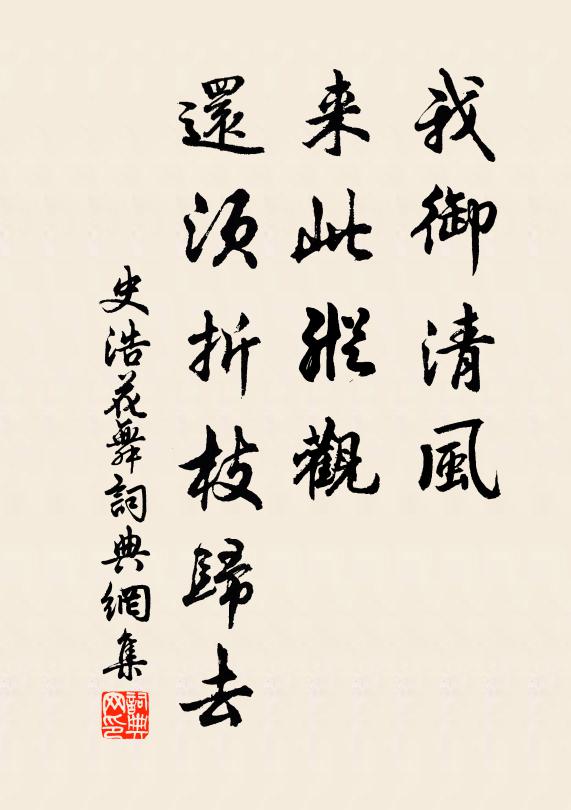 我御清風
来此縱觀
還須折枝歸去
史浩花舞詞典網集
詞典网印